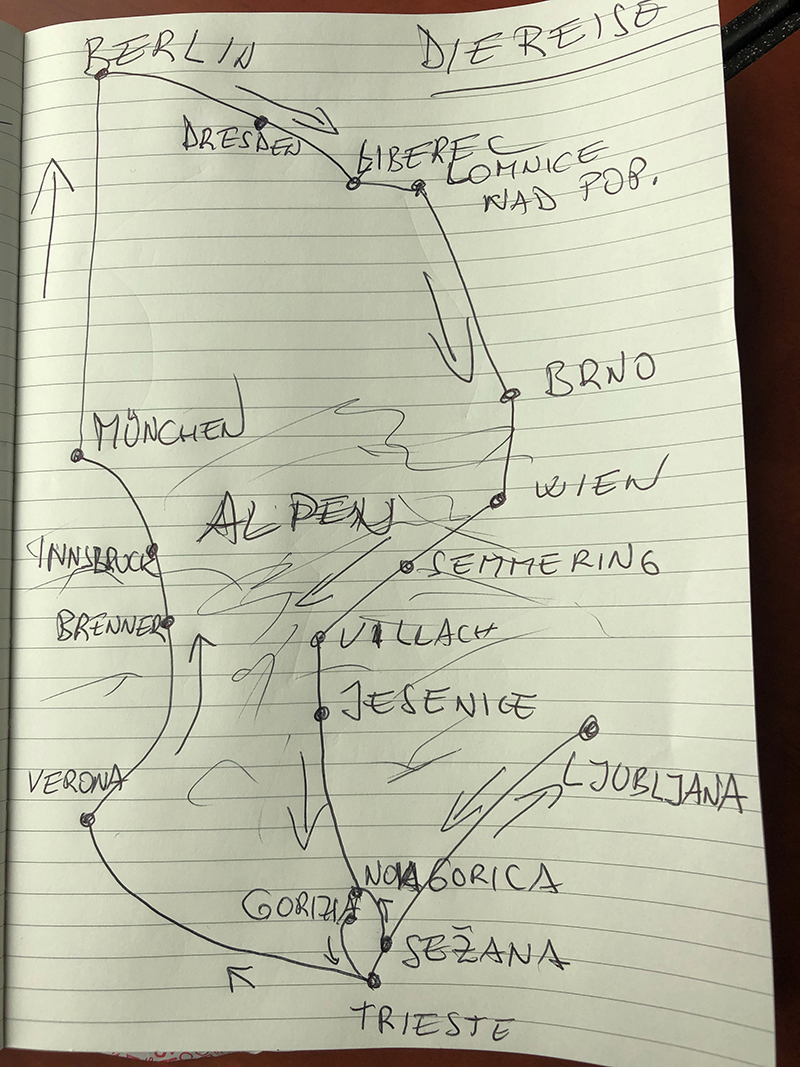 BERLIN
DIE REISE
DRESDEN
LIBEREC
LOMNICE
NAD POP.
BRNO
MÜNCHEN
WIEN
ALPEN
INNSBRUCK
SEMMERING
BRENNER
VILLACH
JESENICE
VERONA
LJUBLJANA
NOVA GORICA
GORIZIA
SEŽANA
TRIESTE